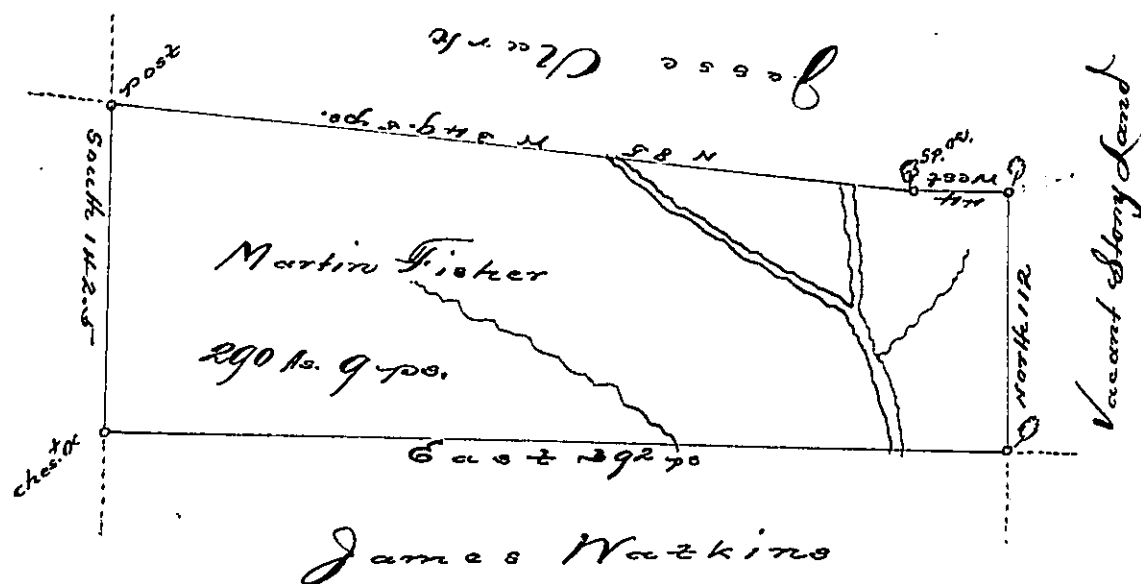 Jesse Clark
post
N 85 W 349.5 po.
Sp. Oa.
West
44
Vacant Stony Land
South 142.5
Martin Fisher
North 112
290 As. 9 ps.
ches. O
East 392 po
James Watkins